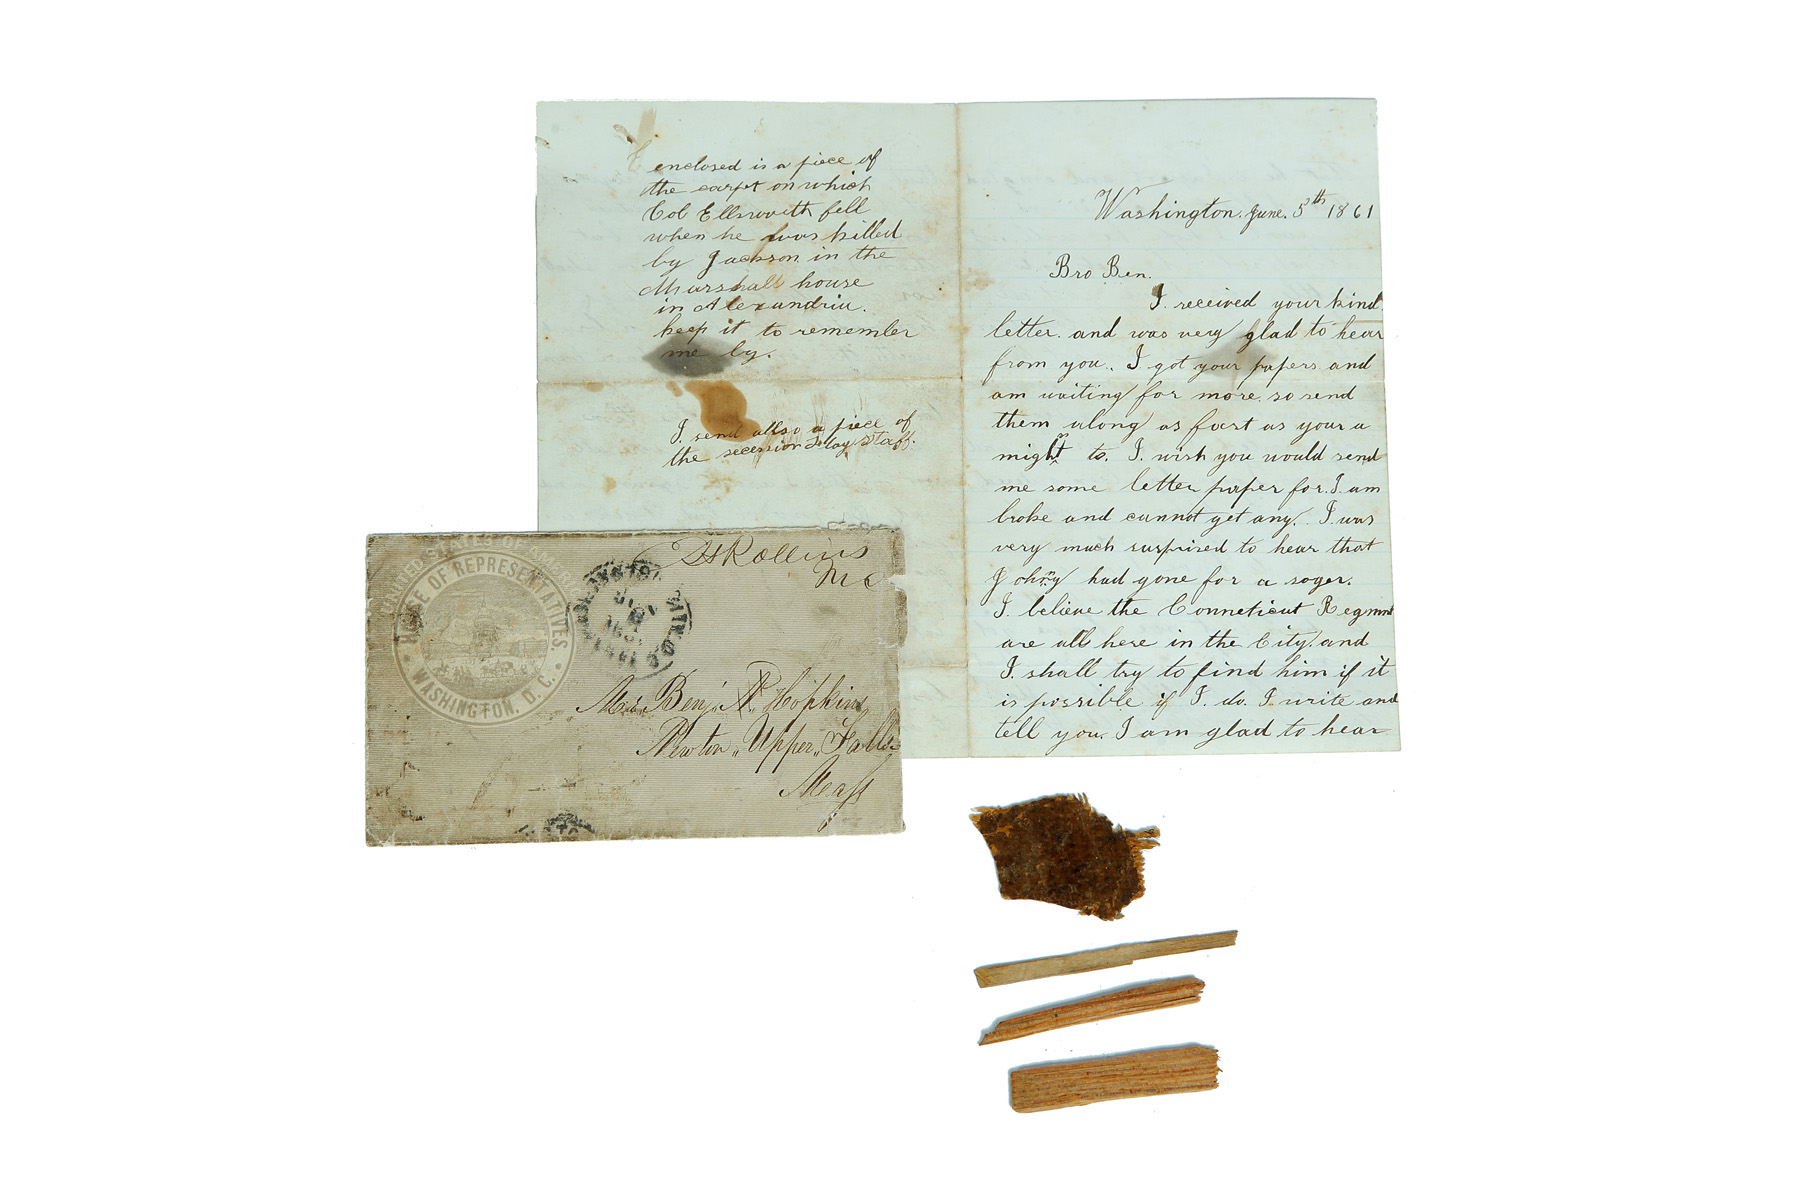 enclosed is a piece of
the carpt on which
Col Ellsworth fell
when he was killed
by Jackson in the
Marshall house
in Alexandria.
keep it to remember
me by.
I. send allso a piece of
the secession flag staff.
Washington. June. 5th 1861
Bro Ben.
I. received your kind
letter. and was very glad to hear
from you.. I got your papers and
am waiting for more. so send
them along as fast as your a
might to. I. wish you would send
me some letter paper for. I. am
broke and cannot get any. I was
very much surprised to hear that
Johnny had gone for a soger.
I. believe the Conneticut Regmnt
are all here in the City. and
I. shall try to find him if it
is possible if I. do. I write and
tell you. I am glad to hear
UNITED STATES OF AMERICA
HOUSE OF REPRESENTATIVES.
WASHINGTON, D. C.
Rollins
M C
WASHINGTON
1861
Benj. P. Hopkins
Newton Upper Falls
Mass